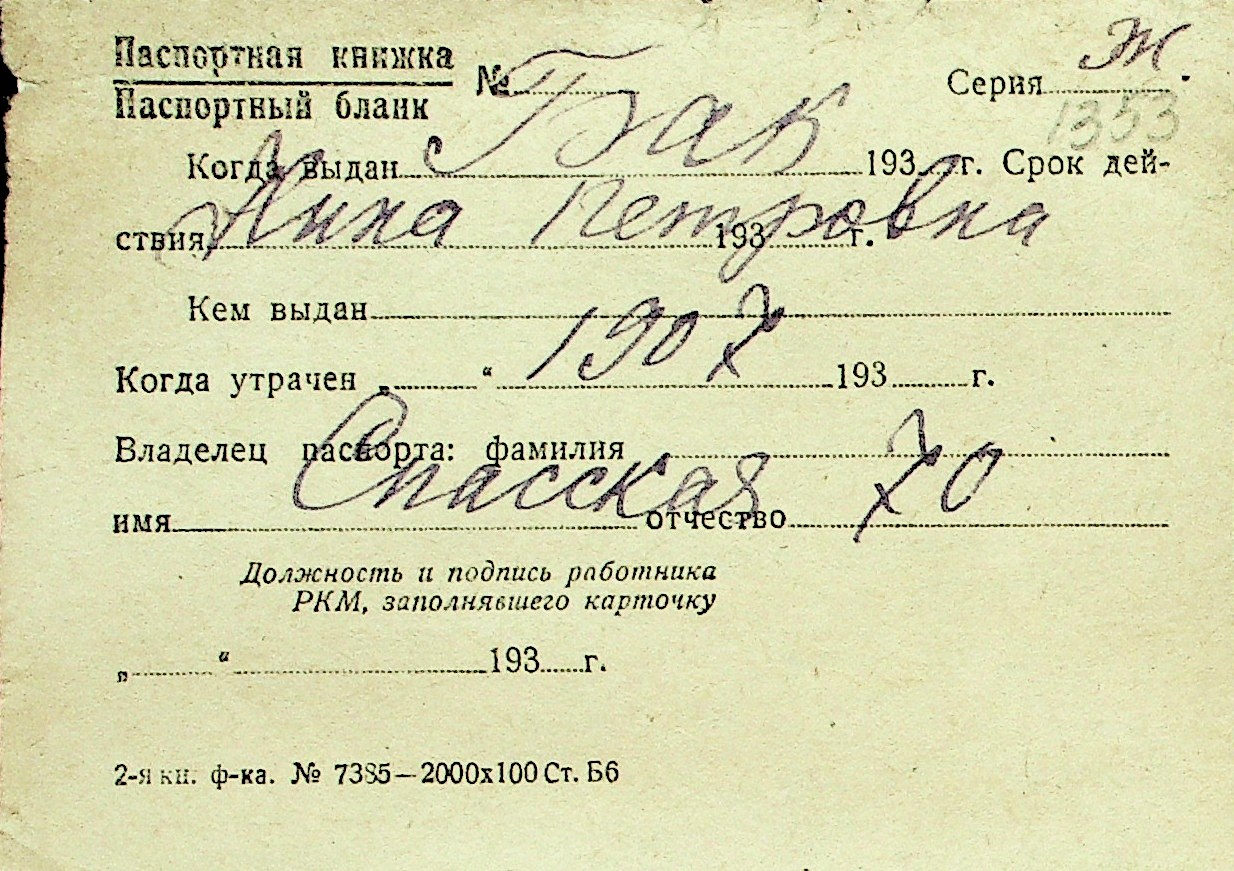 Паспортная книжка
Паспортный бланк
№ Серия Ж.
1353
Бак
Когда выдан 193 г. Срок дей-
Нина Петровна
ствия, 193 г.
Кем выдан
1907
Когда утрачен „ “ 193 г.
Владелец паспорта: фамилия
Спасская 70
имя отчество
Должность и подпись работника
РКМ, заполнявшего карточку
„ “ 193 г.
2-я кн. ф-ка. № 7385—2000х100 Ст. Б6